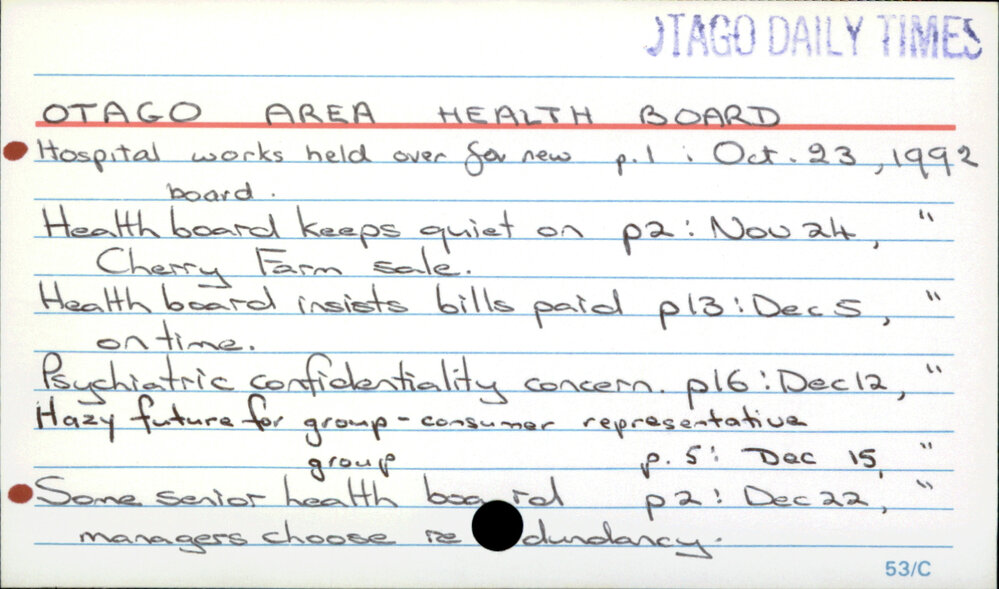 OTAGO DAILY TIMES
OTAGO AREA HEALTH BOARD
Hospital works held over for new p.1 : Oct. 23, 1992
board.
Health board keeps quiet on p2: Nov 24, "
Cherry Farm sale.
Health board insists bills paid p13: Dec 5, "
on time.
Psychiatric confidentiality concern. p16: Dec 12, "
Hazy future for group - consumer representative
group p. 5: Dec 15, "
Some senior health board p2: Dec 22, "
managers choose redundancy.
53/C